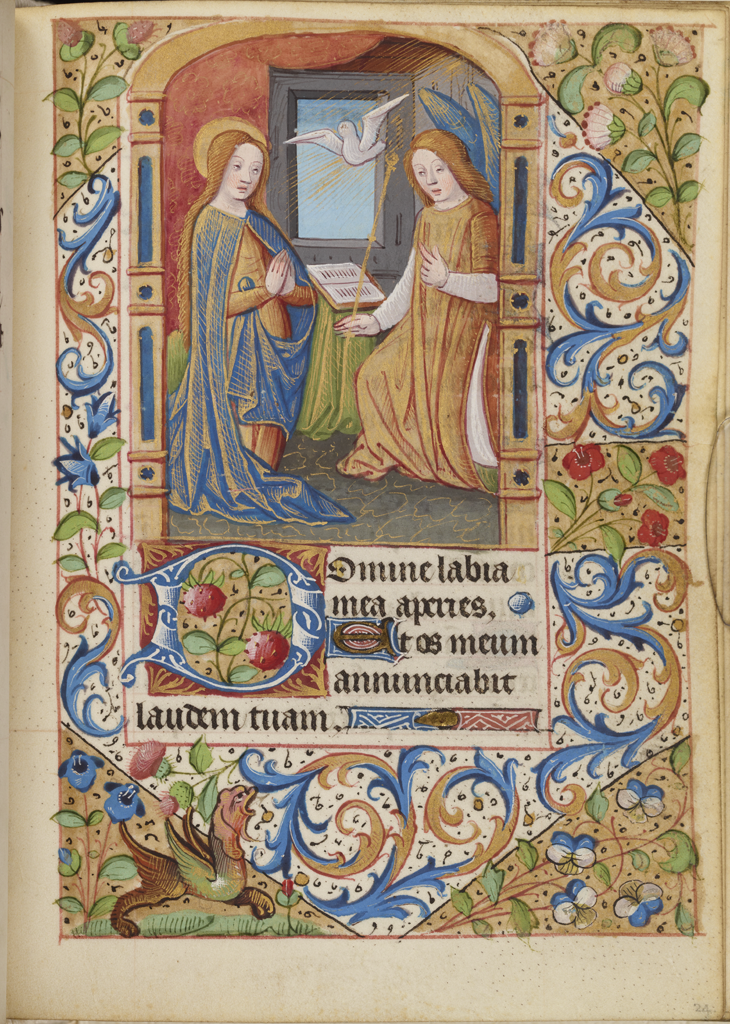 Domine labia
mea aperies,
Et os meum
annunciabit
laudem tuam.